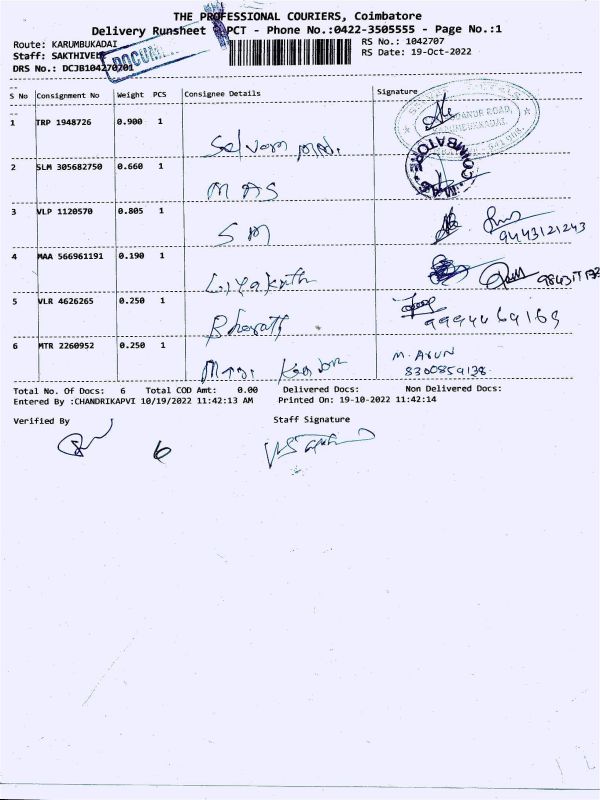 THE PROFESSIONAL COURIERS, Coimbatore
Delivery Runsheet PCT - Phone No.:0422-3505555 - Page No.:1
Route: KARUMBUKADAI
RS No.: 1042707
Staff: SAKTHIVEL
RS Date: 19-Oct-2022
DRS No.: DCJB104270701
DOCUM
S No Consignment No Weight PCS Consignee Details Signature
1 TRP 1948726 0.900 1
ROAD,
COIMBATORE
2 SLM 305682750 0.660 1
MAS
3 VLP 1120570 0.805 1
SM
9443121243
4 MAA 566961191 0.190 1
Liyakath
5 VLR 4626265 0.250 1
Bharath
6 MTR 2260952 0.250 1
M. ARUN
8300859138
Total No. Of Docs: 6 Total COD Amt: 0.00 Delivered Docs: Non Delivered Docs:
Entered By :CHANDRIKAPVI 10/19/2022 11:42:13 AM Printed On: 19-10-2022 11:42:14
Verified By Staff Signature
6